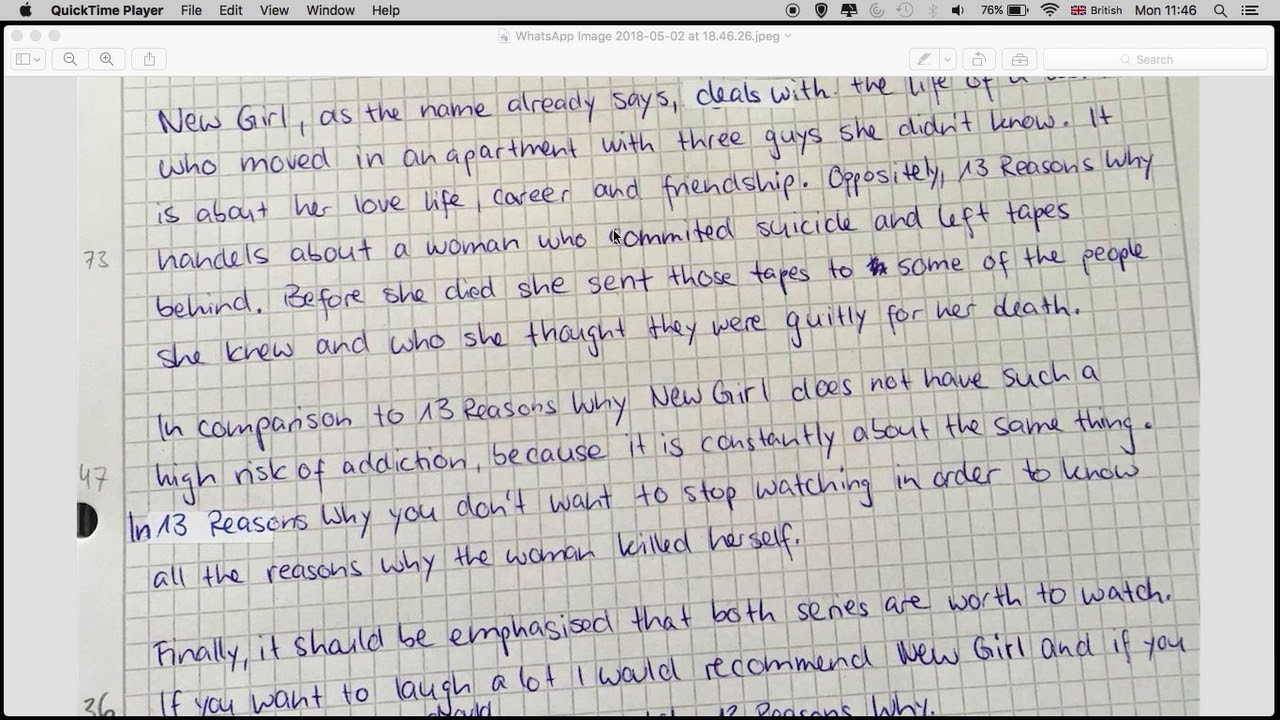 QuickTime Player File Edit View Window Help 76% British Mon 11:46
WhatsApp Image 2018-05-02 at 18.46.26.jpeg
Search
New Girl, as the name already says, deals with the life of a
who moved in an apartment with three guys she didn't know. It
is about her love life, career and friendship. Oppositely, 13 Reasons Why
73 handels about a woman who commited suicide and left tapes
behind. Before she died she sent those tapes to some of the people
she knew and who she thought they were guitly for her death.
In comparison to 13 Reasons Why New Girl does not have such a
47 high risk of addiction, because it is constantly about the same thing.
In 13 Reasons Why you don't want to stop watching in order to know
all the reasons why the woman killed herself.
Finally, it should be emphasised that both series are worth to watch.
36 If you want to laugh a lot I would recommend New Girl and if you
13 Reasons Why.